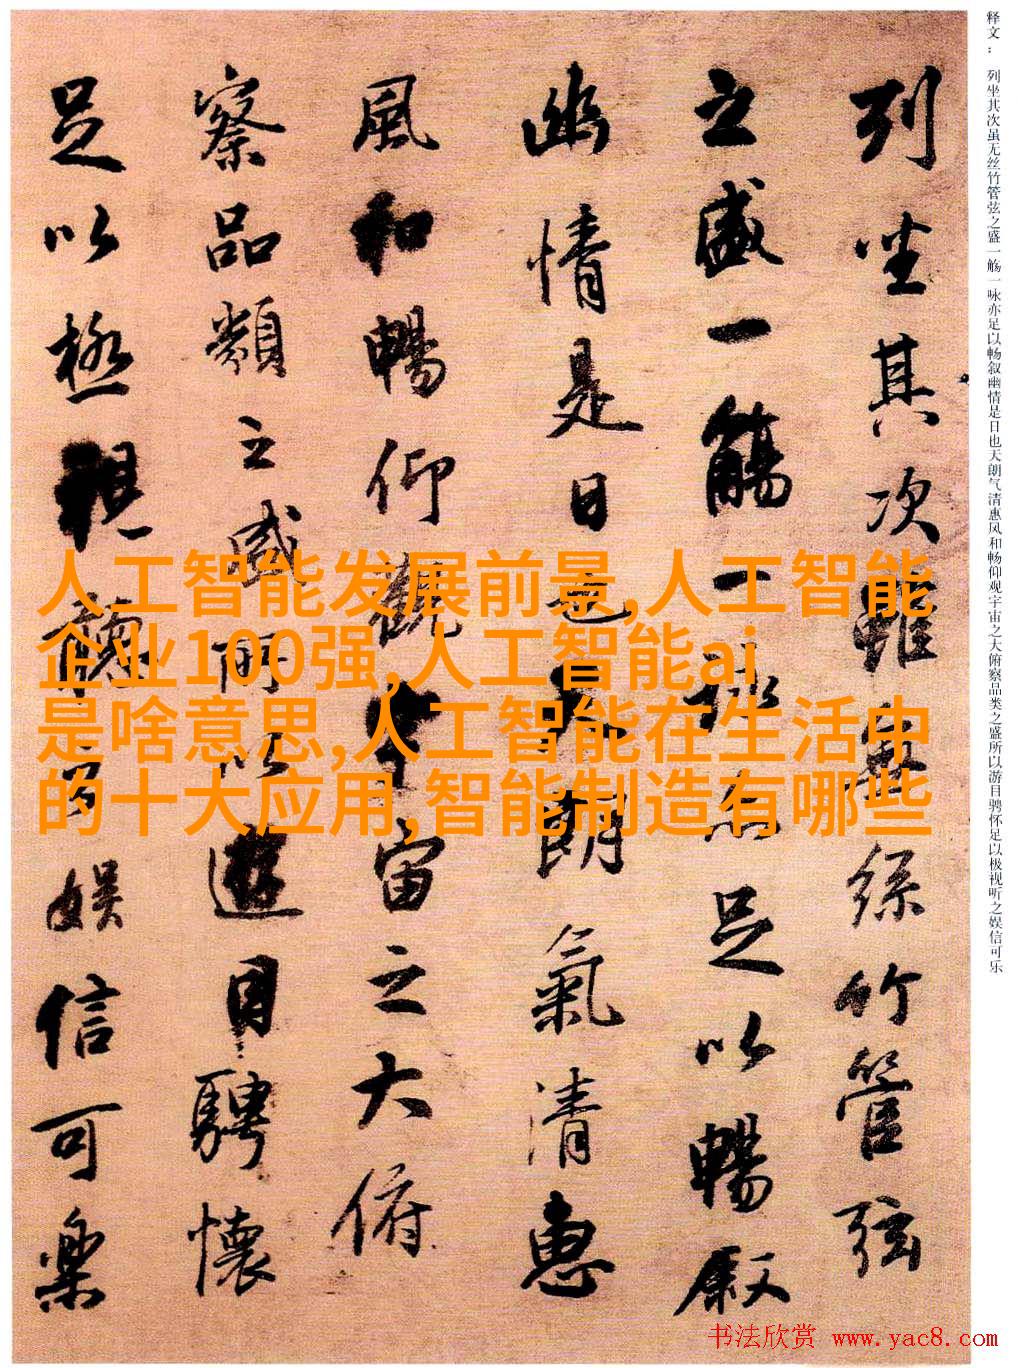 释文：列坐其次虽无丝竹管弦之盛一觞一咏亦足以畅叙幽情是日也天朗气清惠风和畅仰观宇宙之大俯察品类之盛所以游目骋怀足以极视听之娱信可乐
列坐其次雖無絲竹管弦
之盛一觴一詠亦足以暢叙
幽情是日也天朗氣清惠
風和暢仰觀宇宙之大俯
察品類之盛所以遊目騁懷
足以極視聽之娛信可樂
人工智能发展前景,人工智能
企业100强,人工智能ai
是啥意思,人工智能在生活中
的十大应用,智能制造有哪些
书法欣赏 www.yac8.com